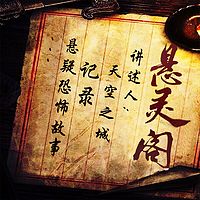 悬灵阁
讲述人：
天空之城
记录
悬疑恐怖故事